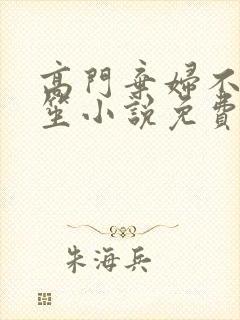 高門棄婦不
笙小說免費
朱海兵